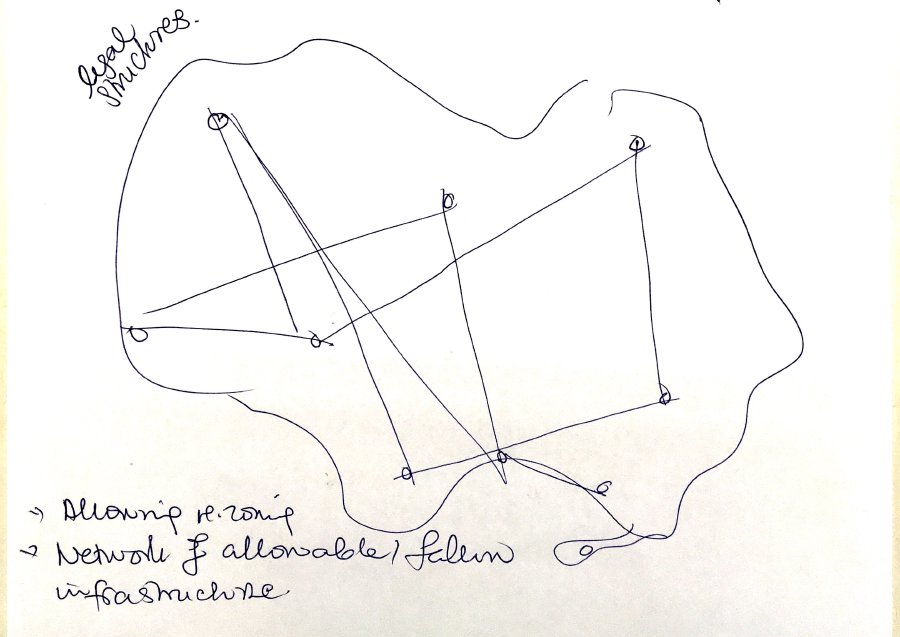 legal
structures.
→ Allowing re-zoning
→ Network of allowable / fallow
infrastructure